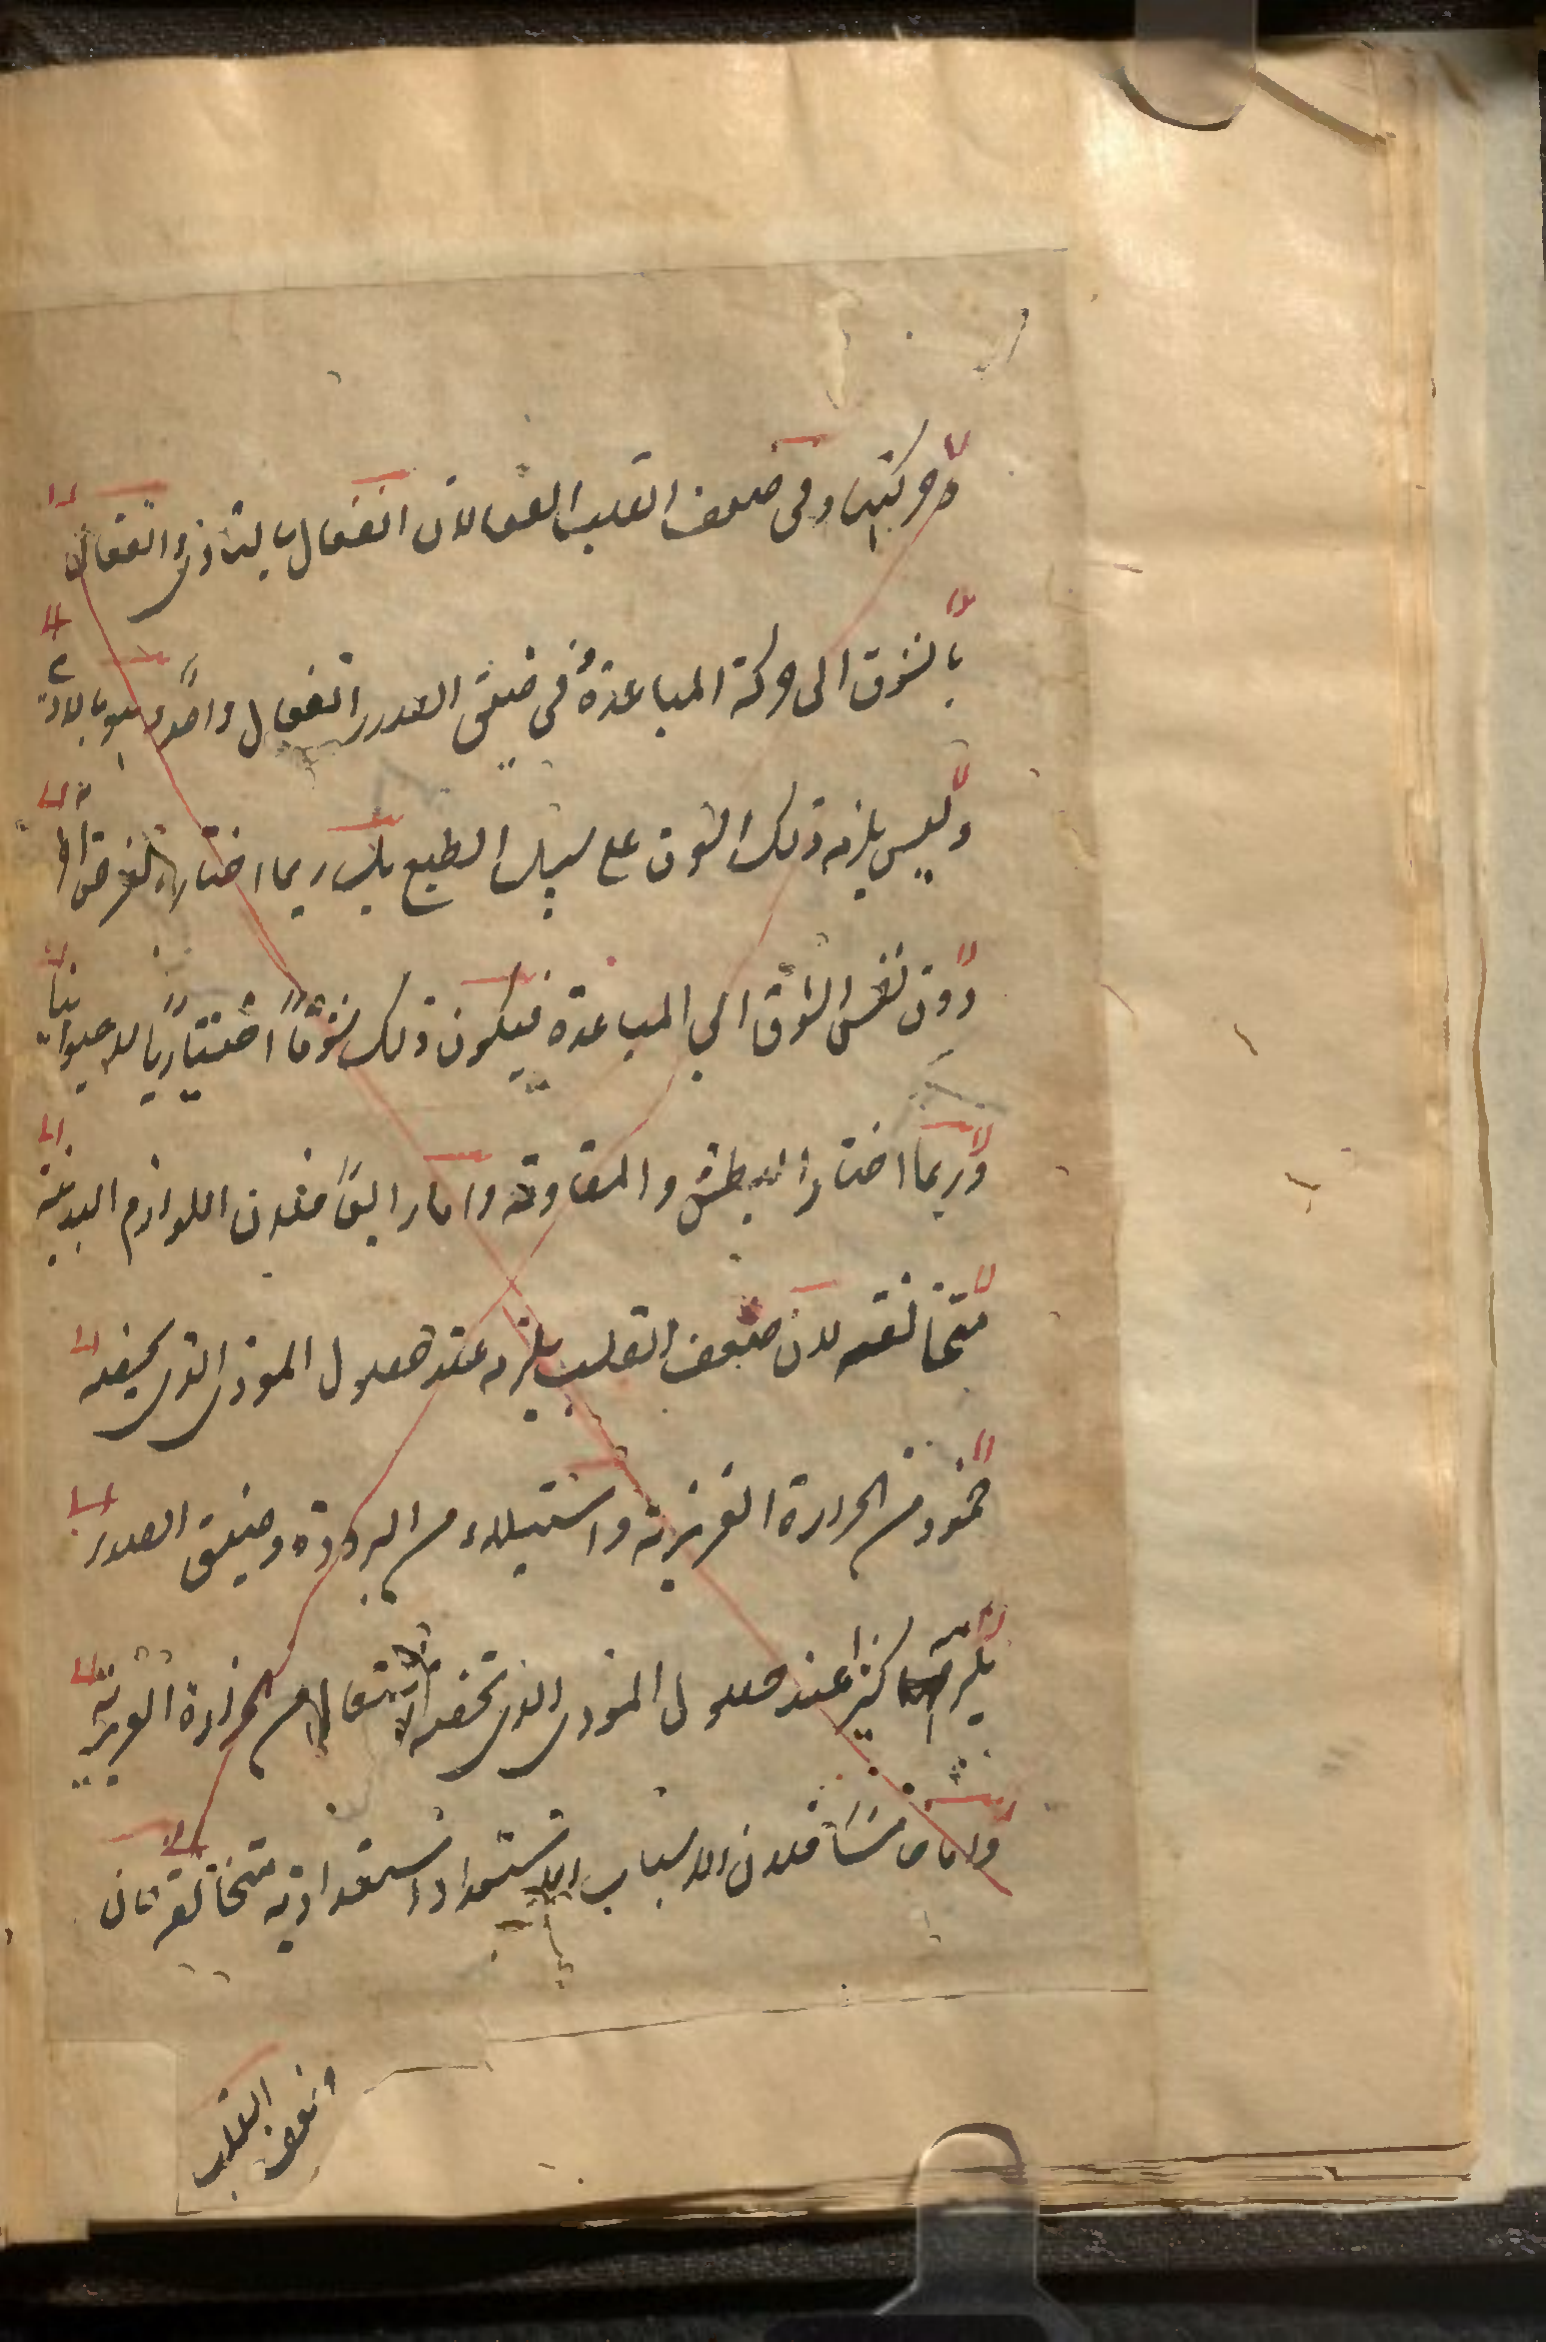 وحركتها وفي ضعف القلب انفعالان انفعال بالتأذي وانفعال
بالشوق الى حركة المباعدة وفي ضيق الصدر انفعال واحد وهو بالاذى
وليس يلزمه ذلك الشوق على سبيل الطبع بل ربما اختاره لغرض
دون نفس الشوق الى المباعدة فيكون ذلك شوقًا اختياريًا لا حيوانيا
وربما اختار البطش والمقاومة واما رابعًا فلان اللوازم البدنية
متخالفه لان ضعف القلب يلزمه عند حصول الموذي الذي يخيفه
خمود من الحرارة الغريزية واستيلاء من البرودة وضيق الصدر
يلزمه كثيرا عند حصول الموذي الذي يخصه اشتعال من الحرارة الغريزية
واما خامسًا فلان الاسباب الاستعدادية متخالفة فان
ضعف القلب